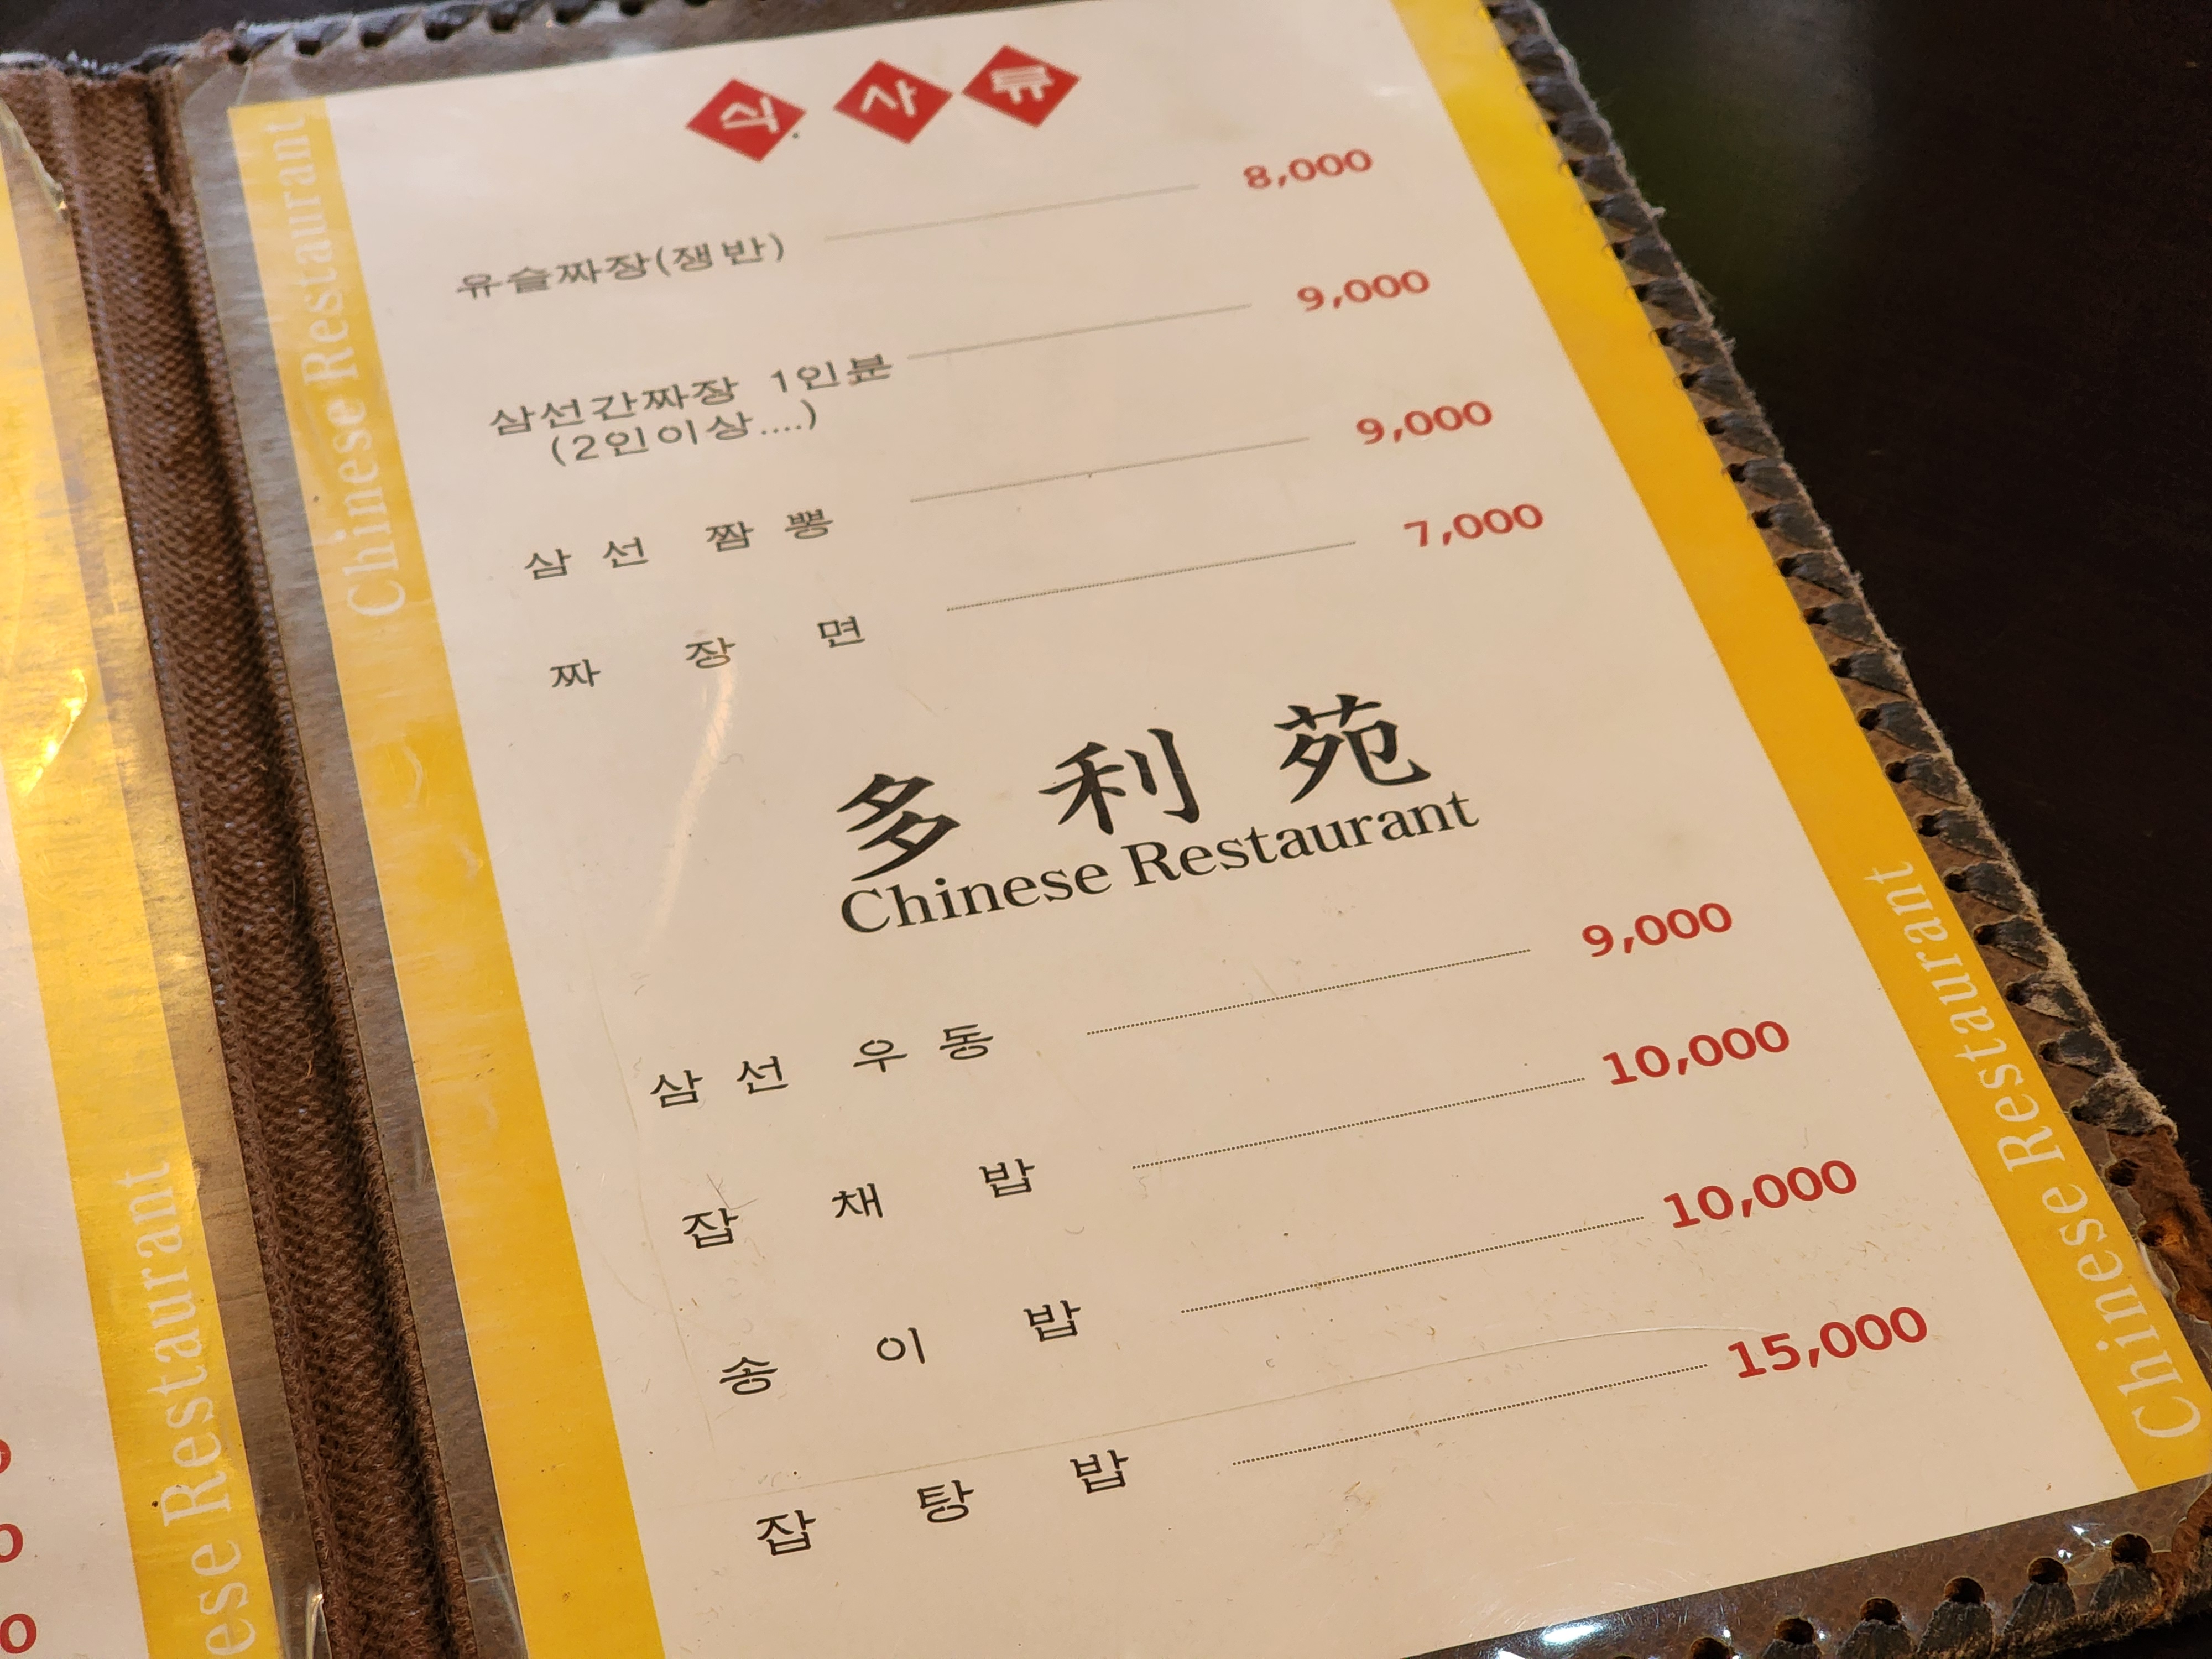 식사류
유슬짜장(쟁반) 8,000
삼선간짜장 1인분 9,000
(2인이상....)
삼선 짬뽕 9,000
짜 장 면 7,000
多 利 苑
Chinese Restaurant
삼선 우동 9,000
잡 채 밥 10,000
송 이 밥 10,000
잡 탕 밥 15,000
Chinese Restaurant
Chinese Restaurant
ese Restaurant